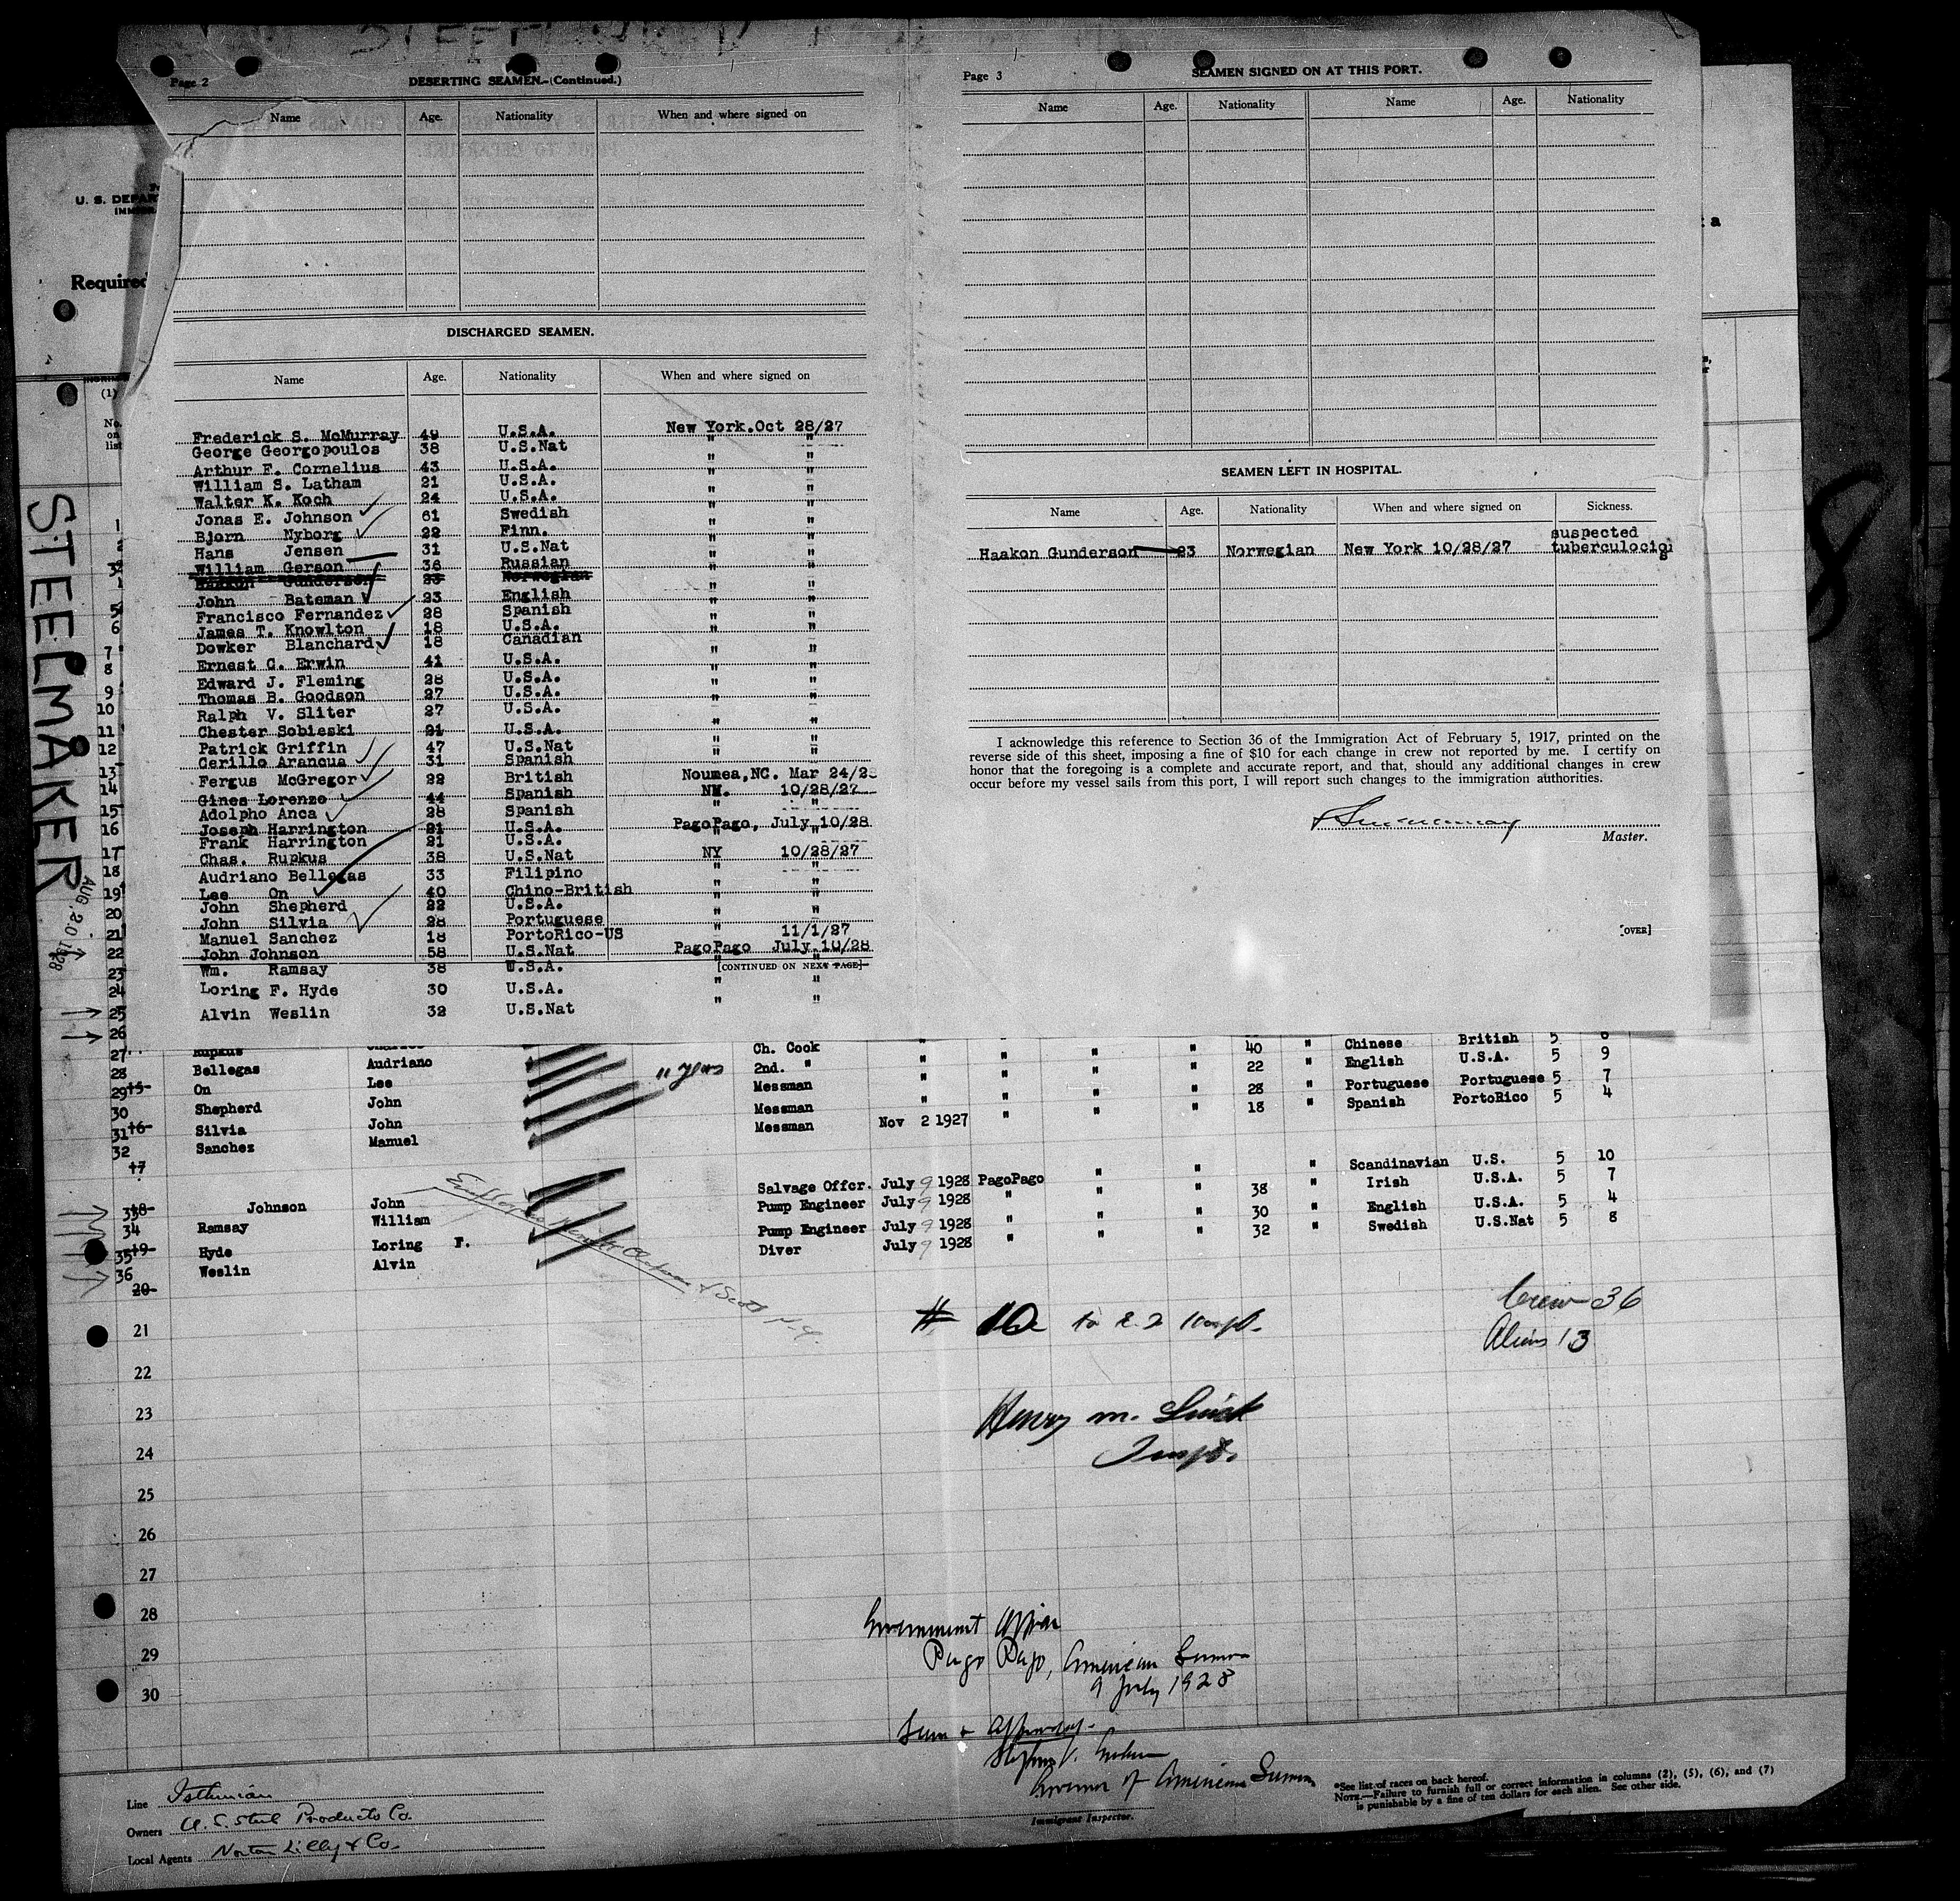 Page 2
DESERTING SEAMEN.—(Continued.)
Name Age. Nationality When and where signed on
DISCHARGED SEAMEN.
Name Age. Nationality When and where signed on
Frederick S. McMurray 49 U.S.A. New York.Oct 28/27
George Georgopoulos 38 U.S.Nat " "
Arthur F. Cornelius 43 U.S.A. " "
William S. Latham 21 U.S.A. " "
Walter K. Koch 24 U.S.A. " "
Jonas E. Johnson 61 Swedish " "
Bjorn Nyborg 22 Finn. " "
Hans Jensen 31 U.S.Nat " "
William Gerson 36 Russian " "
Haakon Gunderson 23 Norwegian
John Bateman 23 English " "
Francisco Fernandez 28 Spanish " "
James T. Knowlton 18 U.S.A. " "
Dowker Blanchard 18 Canadian " "
Ernest C. Erwin 41 U.S.A. " "
Edward J. Fleming 28 U.S.A. " "
Thomas B. Goodson 27 U.S.A. " "
Ralph V. Sliter 27 U.S.A. " "
Chester Sobieski 21 U.S.A. " "
Patrick Griffin 47 U.S.Nat " "
Cerillo Arancua 31 Spanish " "
Fergus McGregor 22 British Noumea,NC. Mar 24/28
Gines Lorenzo 44 Spanish 10/28/27
Adolpho Anca 28 Spanish " "
Joseph Harrington 21 U.S.A. PagoPago, July 10/28
Frank Harrington 21 U.S.A. " "
Chas. Rupkus 38 U.S.Nat NY 10/28/27
Audriano Bellegas 33 Filipino " "
Lee On 40 Chino-British " "
John Shepherd 22 U.S.A. " "
John Silvia 28 Portuguese " "
Manuel Sanchez 18 PortoRico-US " 11/1/27
John Johnson 58 U.S.Nat PagoPago July 10/28
[CONTINUED ON NEXT PAGE]
Wm. Ramsay 38 U.S.A. " "
Loring F. Hyde 30 U.S.A. " "
Alvin Weslin 32 U.S.Nat " "
Page 3
SEAMEN SIGNED ON AT THIS PORT.
Name Age. Nationality Name Age. Nationality
SEAMEN LEFT IN HOSPITAL.
Name Age. Nationality When and where signed on Sickness.
Haakon Gunderson 23 Norwegian New York 10/28/27 suspected
tuberculocis
I acknowledge this reference to Section 36 of the Immigration Act of February 5, 1917, printed on the
reverse side of this sheet, imposing a fine of $10 for each change in crew not reported by me. I certify on
honor that the foregoing is a complete and accurate report, and that, should any additional changes in crew
occur before my vessel sails from this port, I will report such changes to the immigration authorities.
Master.
[OVER]
U. S. DEPAR
IMMIGRA
Required
(1)
No.
on
list
STEELMAKER
AUG. 20 1928
5
6
7
8
9
10
11
12
13
14
15
16
17
18
19
20
21
22
23
24
25
26
8
27 Rupkus Charles
28 Bellegas Audriano Ch. Cook " " " " 40 " Chinese British 5 6
29 15 On Lee 11 years 2nd. " " " " " 22 " English U.S.A. 5 9
30 Shepherd John Messman " " " " 28 " Portuguese Portuguese 5 7
31 16 Silvia John Messman " " " 18 " Spanish PortoRico 5 4
32 Sanchez Manuel Messman Nov 2 1927
17
33 18 Johnson John Salvage Offcr. July 9 1928 PagoPago " " " Scandinavian U.S. 5 10
34 Ramsay William Pump Engineer July 9 1928 " " " 38 " Irish U.S.A. 5 7
35 19 Hyde Loring F. Pump Engineer July 9 1928 " " " 30 " English U.S.A. 5 4
36 Weslin Alvin Diver July 9 1928 " " " 32 " Swedish U.S.Nat 5 8
20
21
22
23
24
25
26
27
28
29
30
Crew 36
Aliens 13
# 10
Henry M.
Insp.
Government Office
Pago Pago, American Samoa
9 July 1928
Seen & Approved
Governor of American Samoa
Line Isthmian
Owners U.S. Steel Products Co.
Local Agents Norton Lilly & Co.
Immigrant Inspector.
*See list of races on back hereof.
NOTE.—Failure to furnish full or correct information in columns (2), (5), (6), and (7)
is punishable by a fine of ten dollars for each alien. See other side.